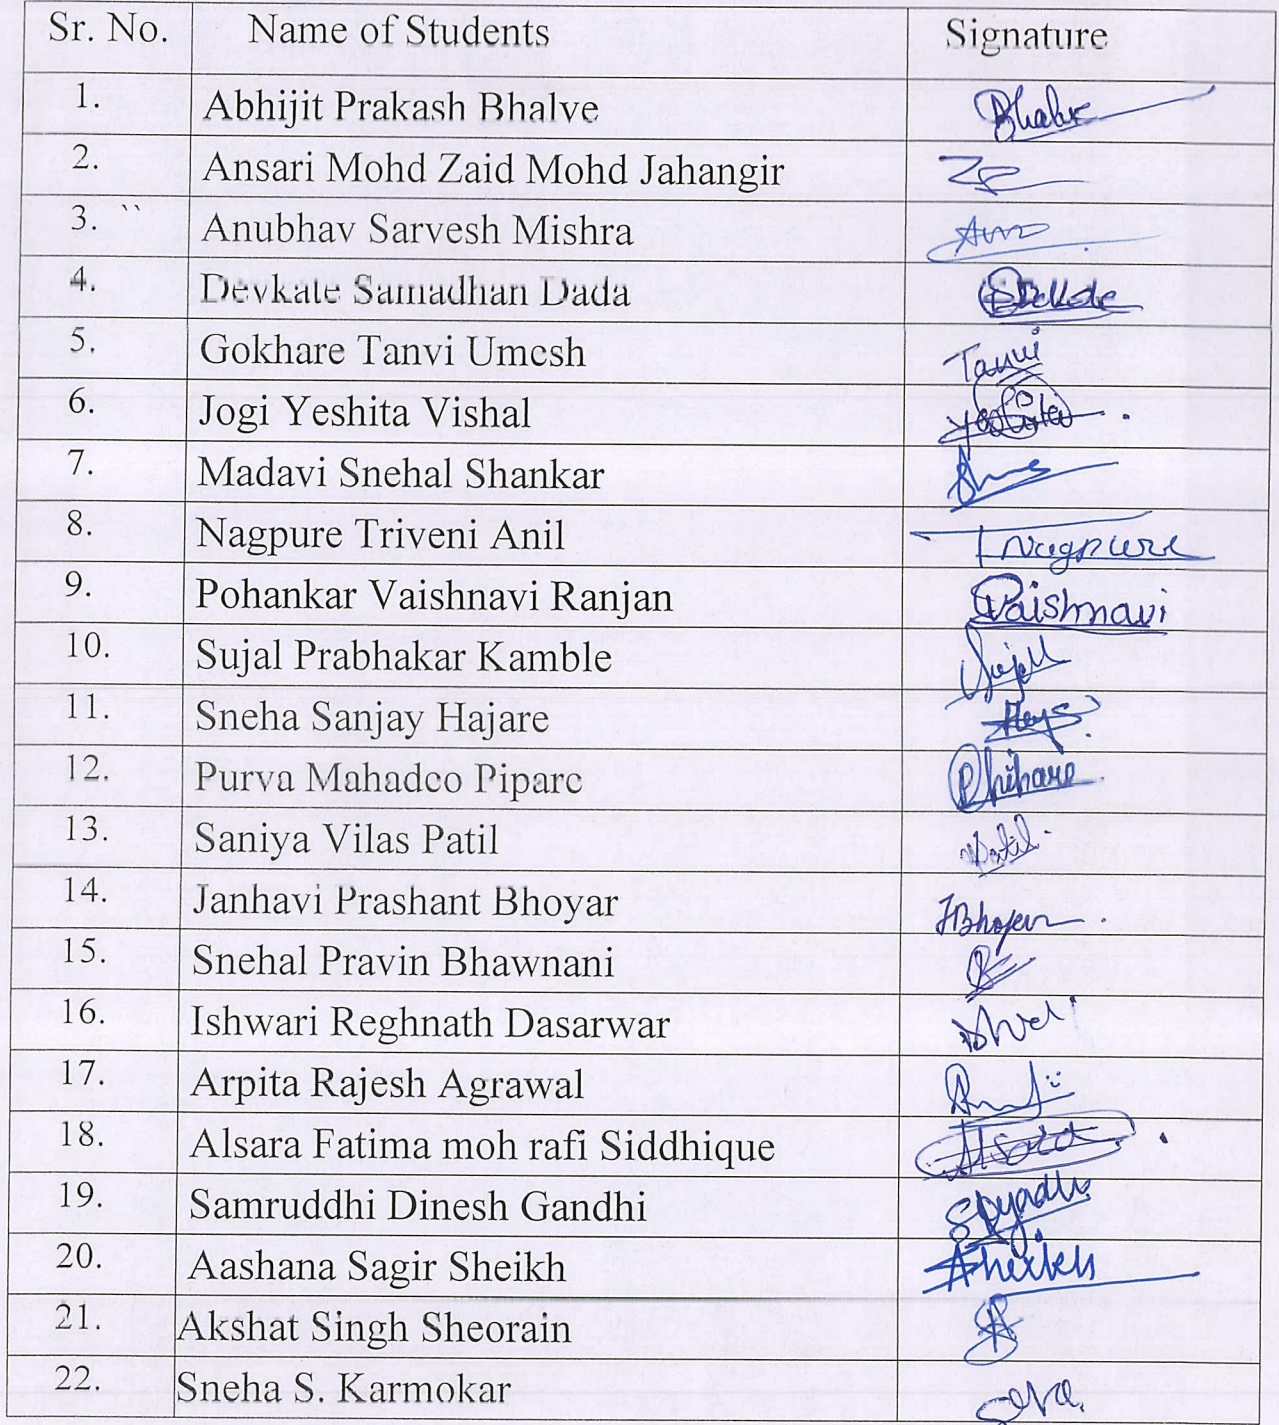 Sr. No. Name of Students Signature
1. Abhijit Prakash Bhalve Bhalve
2. Ansari Mohd Zaid Mohd Jahangir
3. `` Anubhav Sarvesh Mishra
4. Devkate Samadhan Dada
5. Gokhare Tanvi Umesh Tanvi
6. Jogi Yeshita Vishal Yeshita
7. Madavi Snehal Shankar
8. Nagpure Triveni Anil TNagpure
9. Pohankar Vaishnavi Ranjan Vaishnavi
10. Sujal Prabhakar Kamble Sujal
11. Sneha Sanjay Hajare
12. Purva Mahadeo Pipare
13. Saniya Vilas Patil Patil
14. Janhavi Prashant Bhoyar JBhoyar
15. Snehal Pravin Bhawnani
16. Ishwari Reghnath Dasarwar
17. Arpita Rajesh Agrawal
18. Alsara Fatima moh rafi Siddhique Alsara
19. Samruddhi Dinesh Gandhi
20. Aashana Sagir Sheikh ASheikh
21. Akshat Singh Sheorain
22. Sneha S. Karmokar